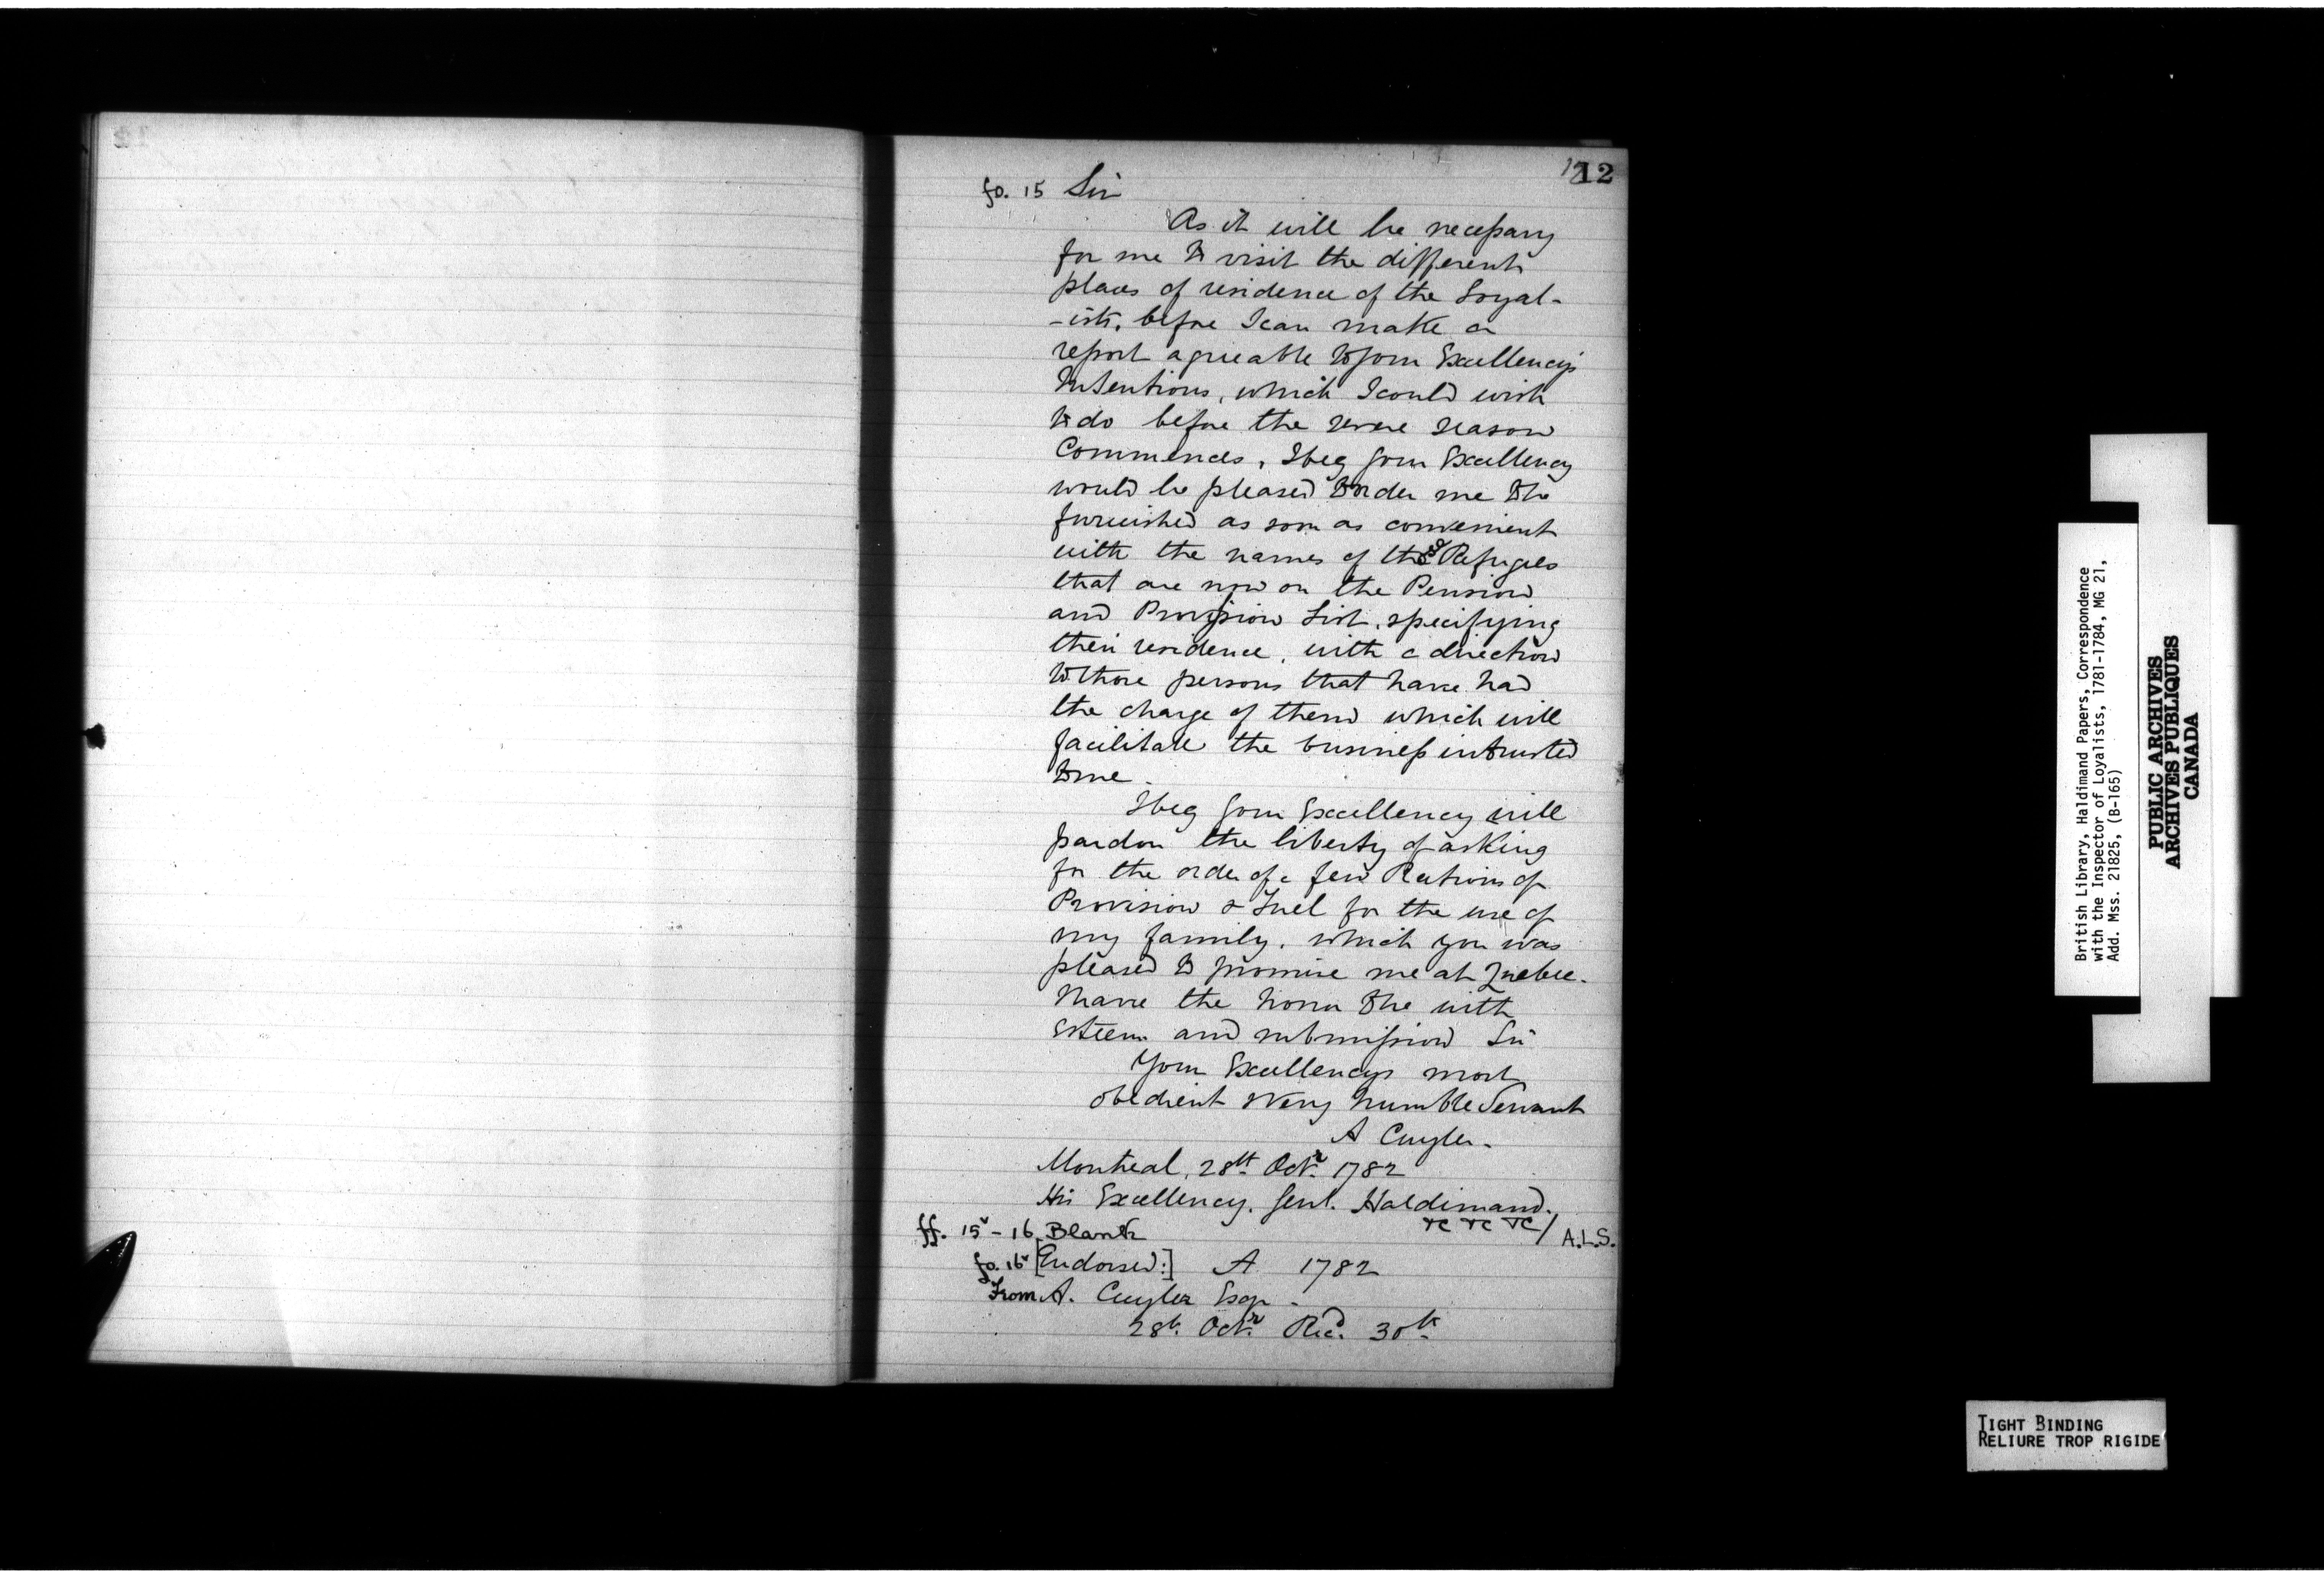 12
fo. 15 Sir
As it will be necessary
for me to visit the different
places of residence of the Loyal-
-ists, before I can make a
report agreeable to your Excellency's
Intentions, which I could wish
to do before the severe season
Commences, I beg your Excellency
would be pleased to order me to be
furnished as soon as convenient
with the names of the Refugees
that are now on the Pension
and Provision List, specifying
their residence, with a direction
to those persons that have had
the charge of them which will
facilitate the business intrusted
to me.
I beg your Excellency will
pardon the liberty of asking
for the order of a few Rations of
Provision & Fuel for the use of
my family, which you was
pleased to promise me at Quebec.
I have the honor to be with
Esteem and submission Sir
Your Excellencys most
obedient & very humble Servant
A Cuyler.
Montreal, 28th Octr 1782
His Excellency. Genl. Haldimand.
&c &c &c / A.L.S.
ff. 15v - 16 Blank
fo. 16v [Endorsed:] A 1782
From A. Cuyler Esqr.
28th. Octr. Recd. 30th
British Library, Haldimand Papers, Correspondence
with the Inspector of Loyalists, 1781-1784, MG 21,
Add. Mss. 21825, (B-165)
PUBLIC ARCHIVES
ARCHIVES PUBLIQUES
CANADA
TIGHT BINDING
RELIURE TROP RIGIDE